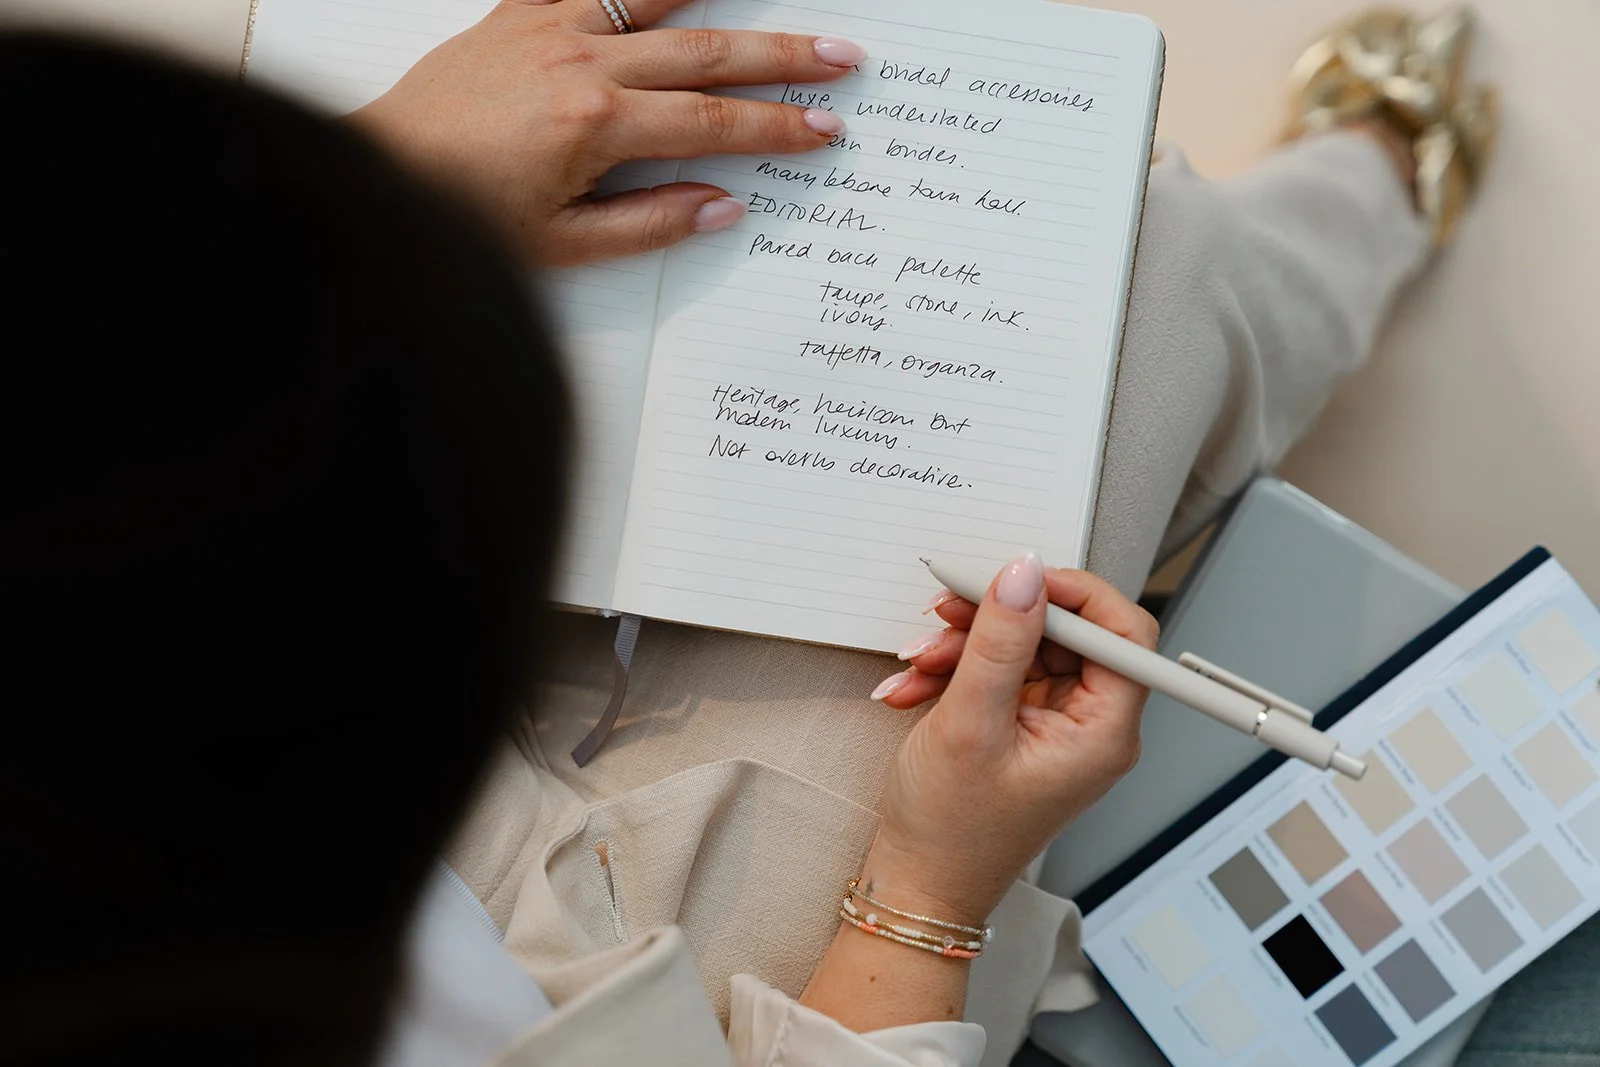 bridal accessories
luxe, understated
brides.
marylebone town hall.
EDITORIAL.
Pared back palette
taupe, stone, ink.
ivory.
taffetta, organza.
Heritage, heirloom but
modern luxury.
Not overly decorative.